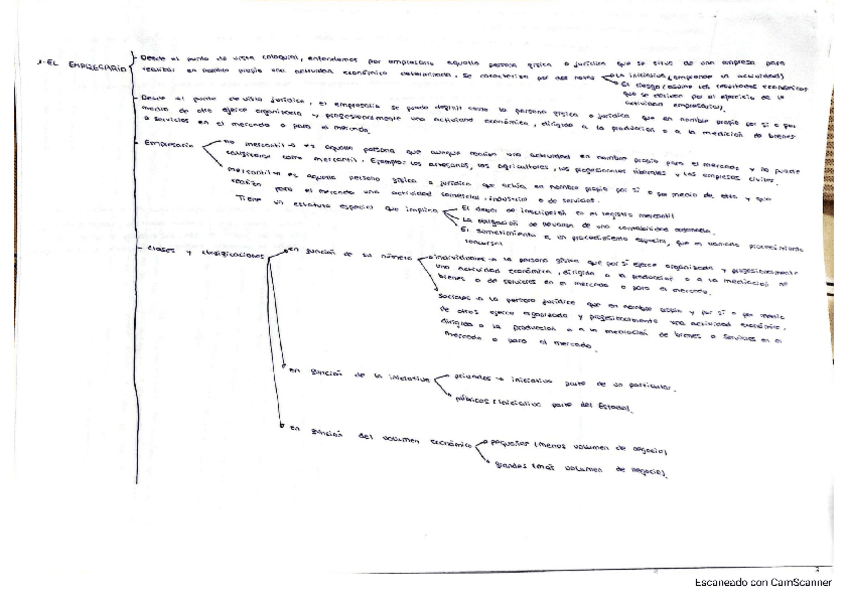 1. EL EMPRESARIO
- Desde el punto de vista coloquial, entendemos por empresario aquella persona física o jurídica que se sirve de una empresa para
realizar en nombre propio una actividad económica determinada. Se caracterizan por dos notas
La iniciativa (emprende un actividad)
El riesgo (asume los resultados económicos
que se deriven por el ejercicio de la
actividad empresarial).
- Desde el punto de vista jurídico, el empresario se puede definir como la persona física o jurídica que en nombre propio por sí o por
medio de otro ejerce organizada y profesionalmente una actividad económica, dirigida a la producción o a la mediación de bienes
o servicios en el mercado o para el mercado.
- Empresario
no mercantil → es aquella persona que aunque realiza una actividad en nombre propio para el mercado y no puede
calificarse como mercantil. Ejemplo: los artesanos, los agricultores, los profesionales liberales y las empresas civiles.
mercantil → es aquella persona física o jurídica que actúa en nombre propio por sí o por medio de otro y que
realiza para el mercado una actividad comercial, industrial o de servicios.
Tiene un estatuto especial que implica
El deber de inscripción en el registro mercantil
La obligación de llevanza de una contabilidad ordenada.
El sometimiento a un procedimiento especial, que es llamado procedimiento
concursal
- Clases y clasificaciones
en función de su número
individuales → la persona física que por sí ejerce organizada y profesionalmente
una actividad económica, dirigida a la producción o a la mediación de
bienes o de servicios en el mercado o para el mercado.
Sociales → la persona jurídica que en nombre propio y por sí o por medio
de otros ejerce organizada y profesionalmente una actividad económica,
dirigida a la producción o a la mediación de bienes o servicios en el
mercado o para el mercado.
en función de la iniciativa
privadas → iniciativa parte de un particular.
públicas (iniciativa parte del Estado).
en función del volumen económico
pequeñas (menos volumen de negocio)
grandes (más volumen de negocio).
Escaneado con CamScanner